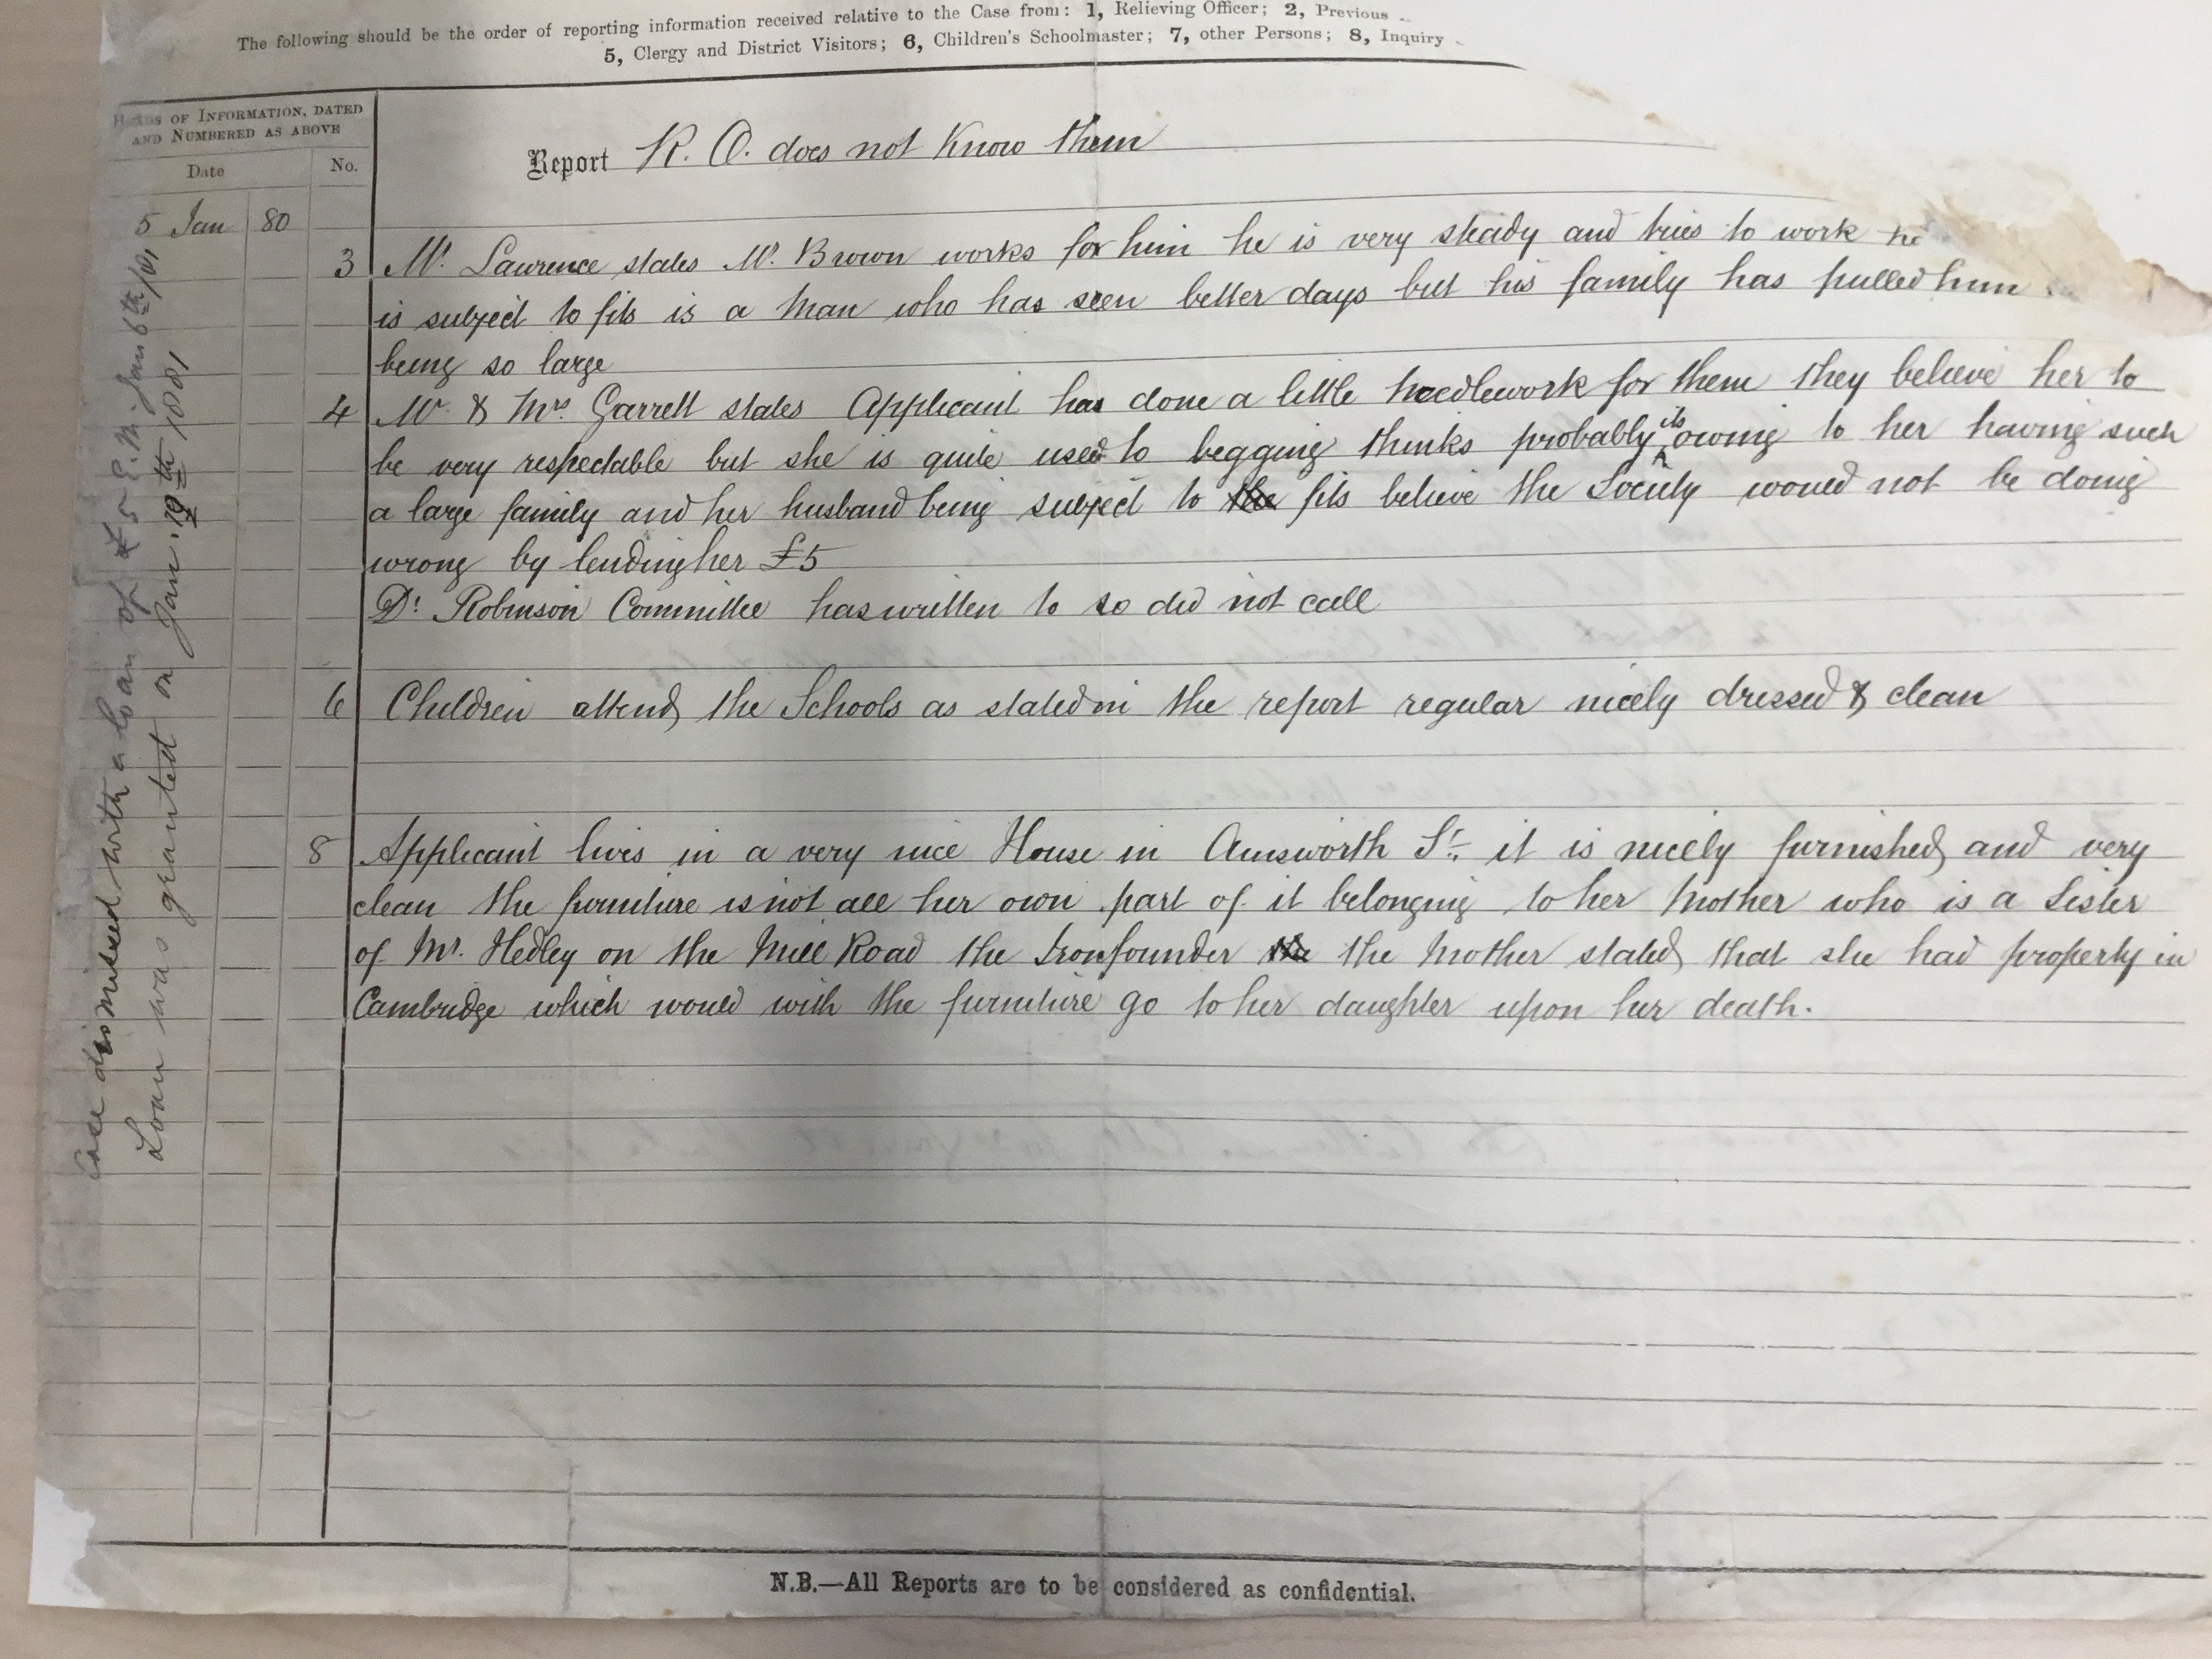 The following should be the order of reporting information received relative to the Case from: 1, Relieving Officer; 2, Previous
5, Clergy and District Visitors; 6, Children's Schoolmaster; 7, other Persons; 8, Inquiry
of Information, dated
and Numbered as above
Date No.
Report R. O. does not Know them
5 Jan 80
3 Mr. Lawrence states Mr. Brown works for him he is very steady and tries to work he
is subject to fits is a man who has seen better days but his family has pulled him
being so large
4 Mr. & Mrs. Garrett states Applicant has done a little needlework for them they believe her to
be very respectable but she is quite used to begging thinks probably its owing to her having such
a large family and her husband being subject to the fits believe the Society would not be doing
wrong by lending her £5
Dr. Robinson Committee has written to so did not call
6 Children attend the Schools as stated in the report regular nicely dressed & clean
8 Applicant lives in a very nice House in Ainsworth St. it is nicely furnished and very
clean the furniture is not all her own part of it belonging to her Mother who is a Sister
of Mr. Hedley on the Mill Road the Ironfounder the the Mother stated that she had property in
Cambridge which would with the furniture go to her daughter upon her death.
Case dismissed with a loan of £5 Jan 6th/81
Loan was granted on Jan. 19th 1881
N.B.—All Reports are to be considered as confidential.